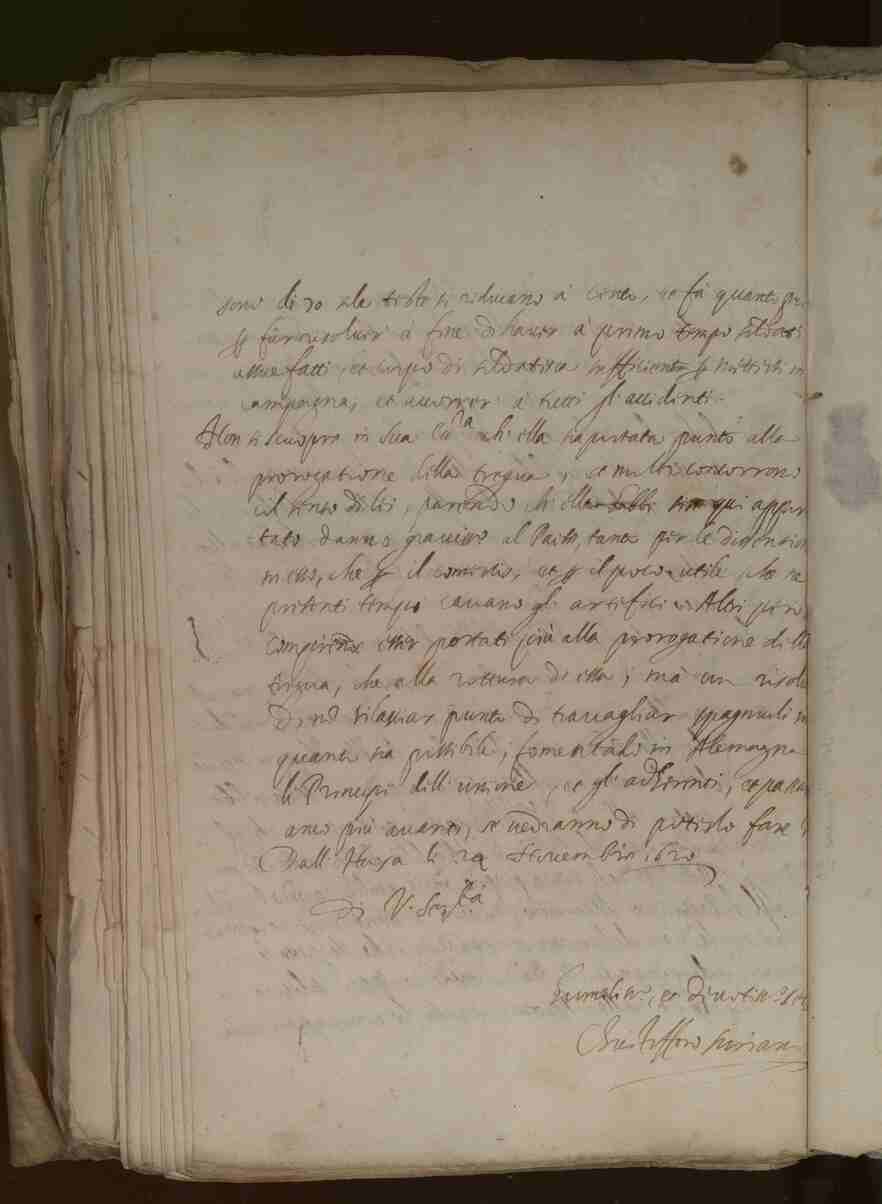 sono di 70 ele teste si riducano à cento, et fà quanto può
per farne risoluer à fine d'hauer à primo tempo soldati
assuefatti, et corpo di soldatesca sufficiente per mettersi in
campagna, et accorrer à tutti gl'accidenti.
Non si scuopre in Sua Ecc.za ch'ella sia portata punto alla
prorogatione della tregua, et molti concorrono
nel senso di lei, parendo ch'ella habbi sin qui appor
tato danno grauiss.o al Paese, tanto per le dissension
in esso, che per il comertio, et per il poco utile, che ne
presenti tempi cauano gl'artefici. Altri però
esser portati più alla prorogatione della
tregua, che alla rottura di essa; mà con risolu
di non rilassiar punto di trauagliar spagnuoli in
quanto sia possibile, fomentando in Alemagna
li Principi dell'unione, et gl'adherenti, et passar
anco più auanti, se uedranno di poterlo fare
Dall'Haya li 24 Nouembre 1620
Di V. Ser.tà
humiliss.o, et deuotiss.o
Christofforo Surian